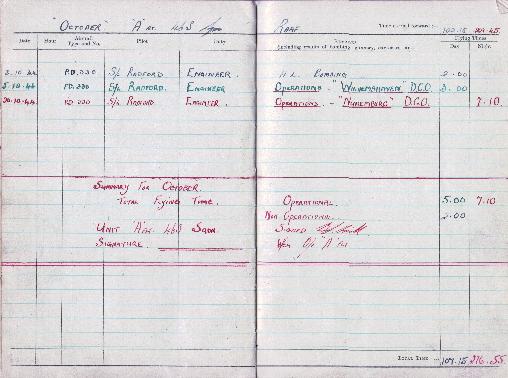 "October" "A" Flt. 463 Sqn RAAF
Time carried forward :— 102.15
Date Hour Aircraft Type and No. Pilot Duty Remarks (including results of bombing, gunnery, exercises, etc.) Flying Times Day Night
3.10.44 PD.330 S/L Radford. Engineer. H.L. Bombing 2.00
5.10.44 PD.330 S/L Radford. Engineer Operations - "Wilhemshaven" D.C.O. 5.00
PD.330 S/L Radford. Engineer. Operations. - "Nuremburg" D.C.O. 7.10.
Summary For "October.
Total Flying Time. Operational. 5.00 7.10
Non Operational. 2.00
Unit "A" Flt. 463 Sqdn. Signed
Signature. O/C "A" Flt
Total Time 109.15 276.55